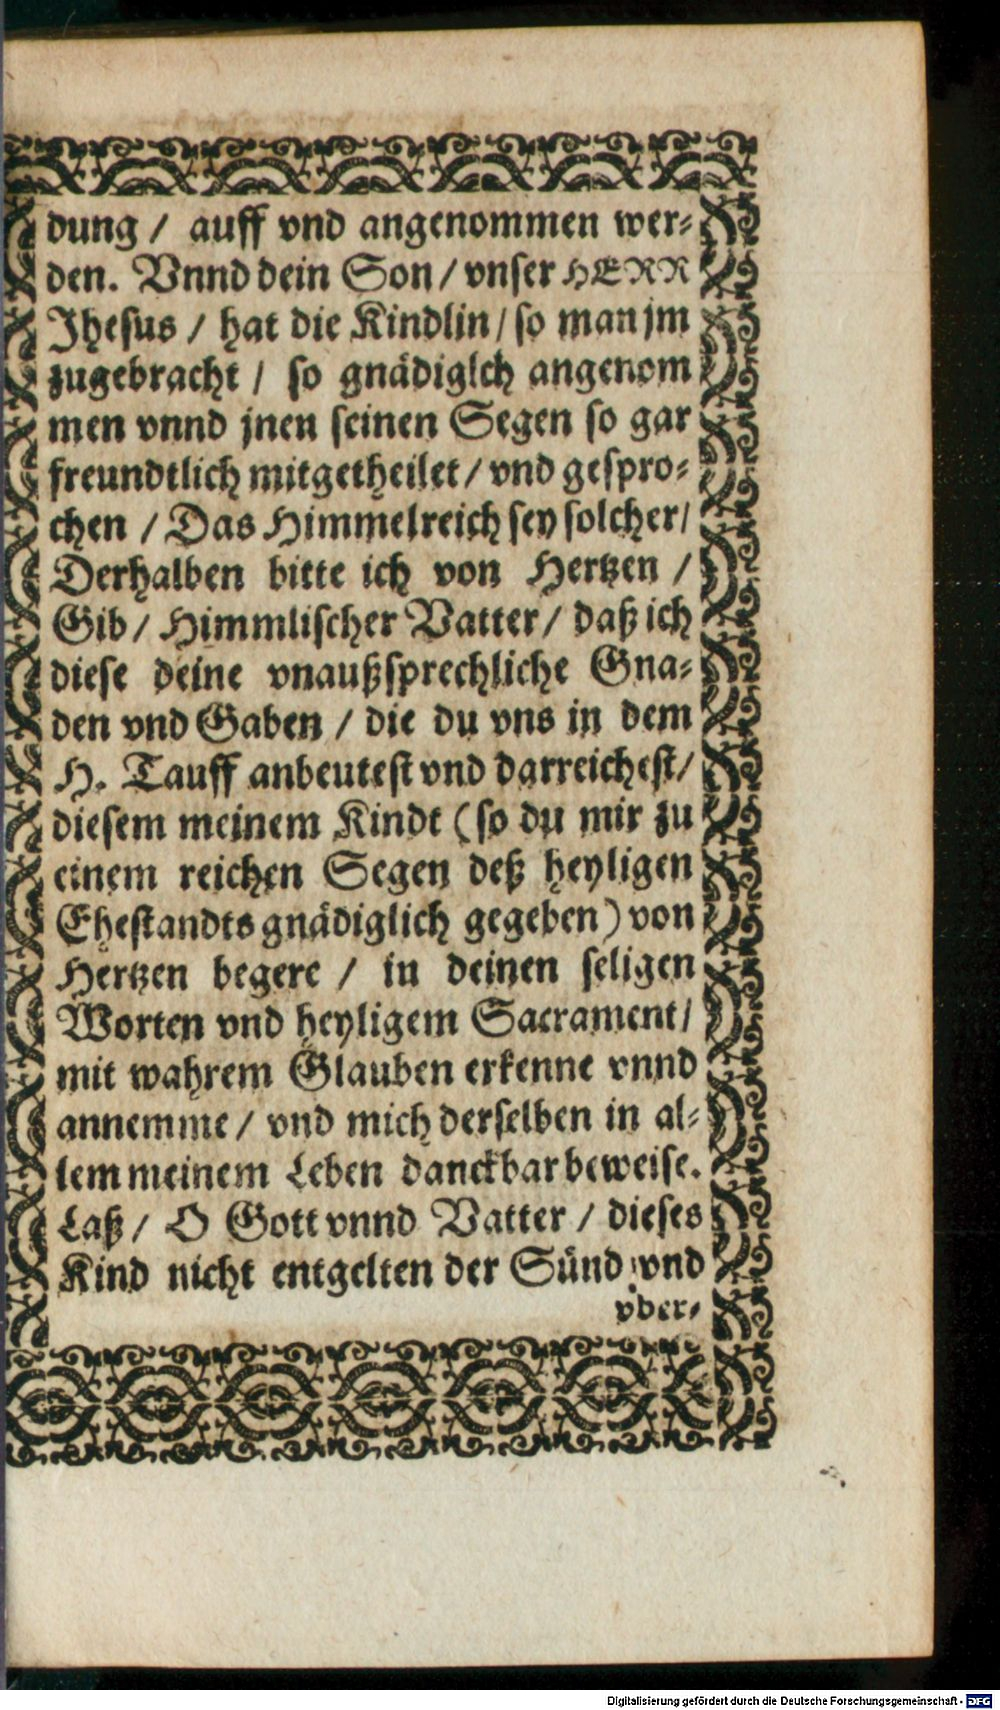 dung / auff vnd angenommen wer-
den. Vnnd dein Son / vnser HERR
Jhesus / hat die Kindlin / so man jm
zugebracht / so gnädiglch angenom
men vnnd jnen seinen Segen so gar
freundtlich mitgetheilet / vnd gespro-
chen / Das Himmelreich sey solcher /
Derhalben bitte ich von Hertzen /
Gib / Himmlischer Vatter / daß ich
diese deine vnaußsprechliche Gna-
den vnd Gaben / die du vns in dem
H. Tauff anbeutest vnd darreichest /
diesem meinem Kindt (so du mir zu
einem reichen Segen deß heyligen
Ehestandts gnädiglich gegeben) von
Hertzen begere / in deinen seligen
Worten vnd heyligem Sacrament /
mit wahrem Glauben erkenne vnnd
annemme / vnd mich derselben in al-
lem meinem Leben danckbar beweise.
Laß / O Gott vnnd Vatter / dieses
Kind nicht entgelten der Sünd vnd
vber-
Digitalisierung gefördert durch die Deutsche Forschungsgemeinschaft - DFG